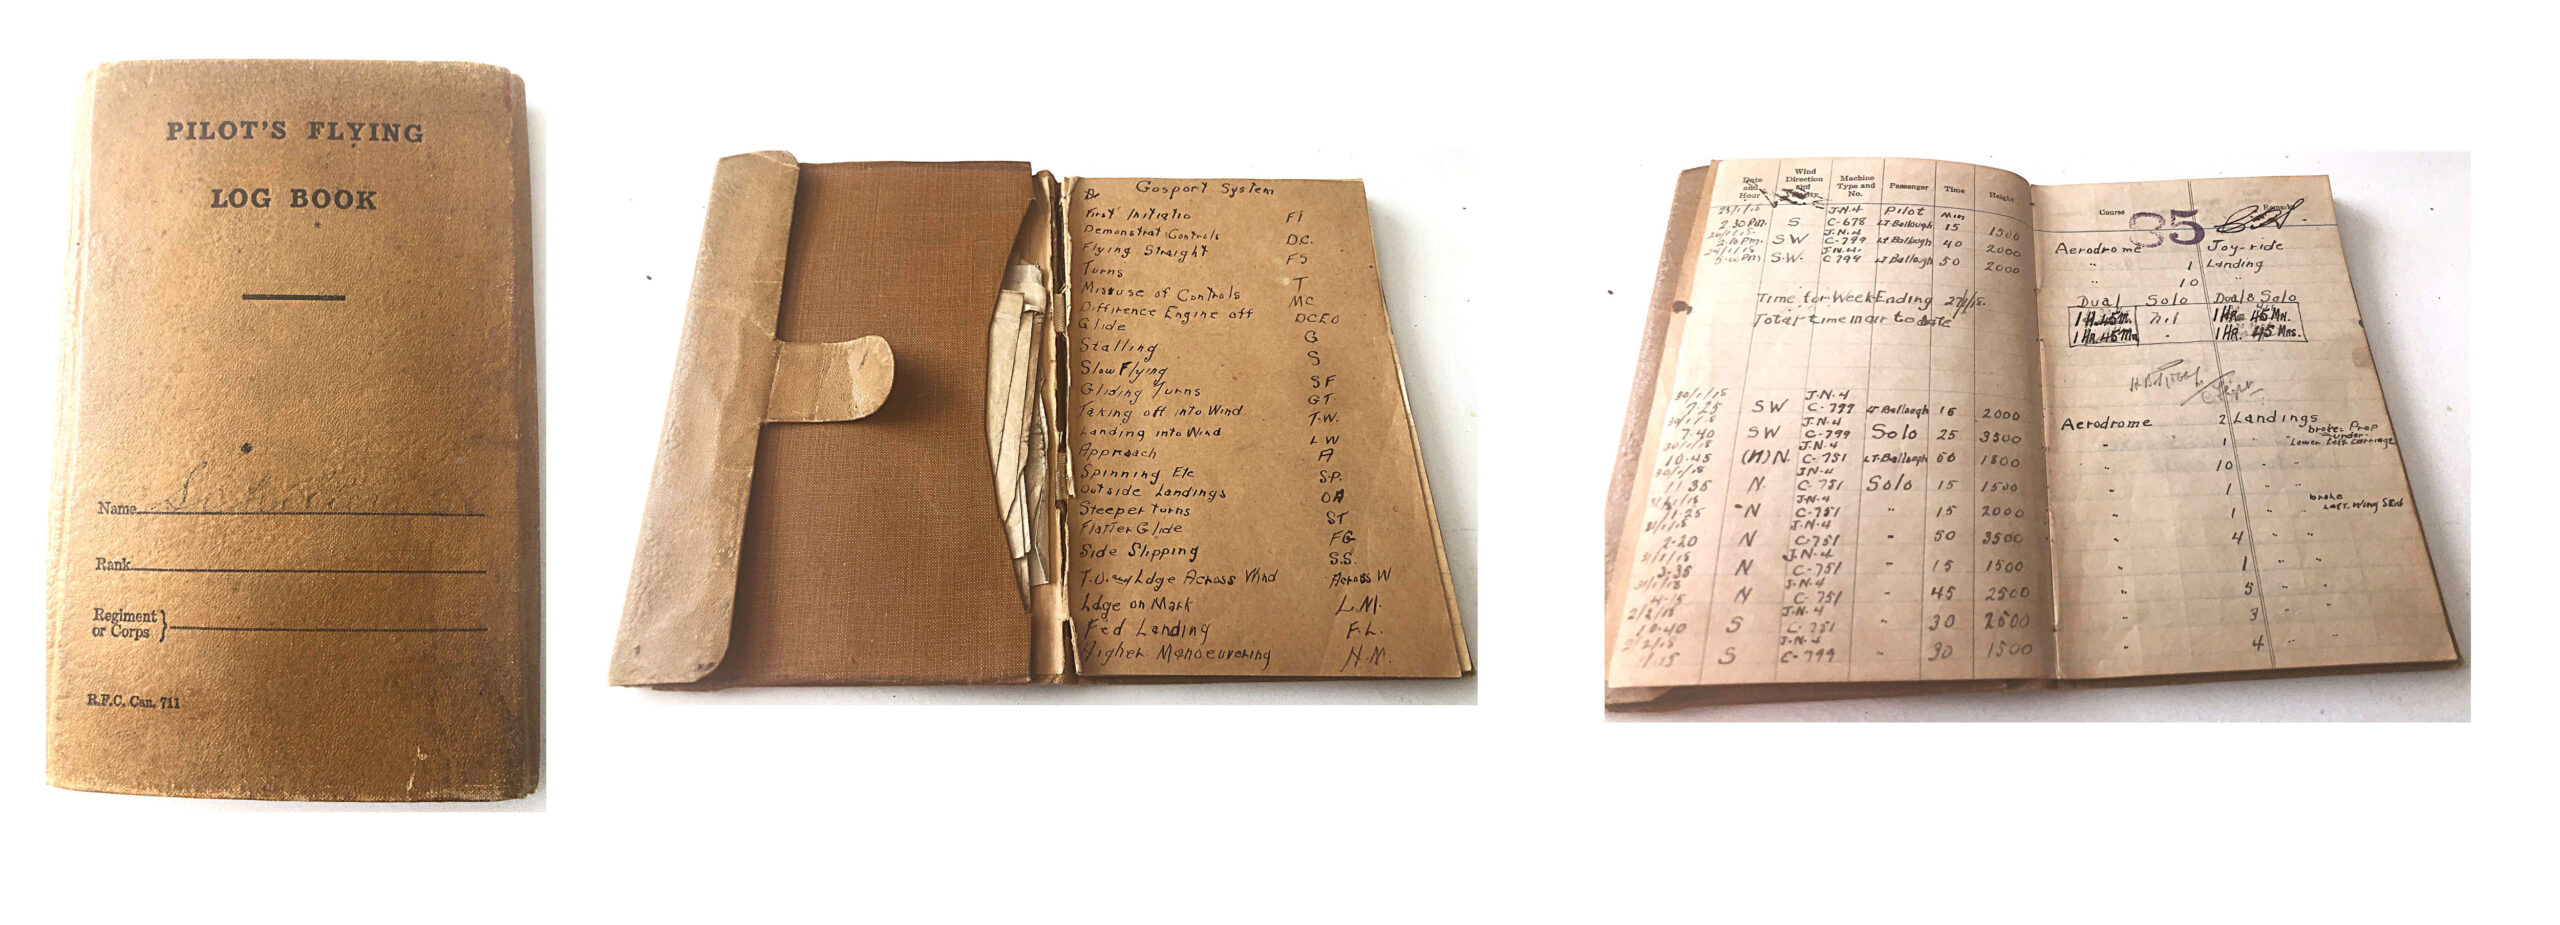 PILOT'S FLYING
LOG BOOK
Name
Rank
Regiment
or Corps }
R.F.C. Can. 711
Gosport System
First Initiatio FI
Demonstrat Controls D.C.
Flying Straight FS
Turns T
Misuse of Controls MC
Diffirence Engine off DCEO
Glide G
Stalling S
Slow Flying SF
Gliding Turns GT
Taking off into Wind T.W.
Landing into Wind L W
Approach A
Spinning Etc S.P.
Outside Landings OA
Steeper turns ST
Flatter Glide FG
Side Slipping S.S.
T.O. Ldge Across Wind Across W
Ldge on Mark L.M.
F'ed Landing F.L.
Higher Manoeuvering H.M.
Date and Hour Wind Direction and Machine Type and No. Passenger Time Height
J.N.4 Pilot Min
2.30 Pm. S. C-678 Lt Ballough 15 1500
J.N.4
2.10 Pm. SW C-799 Lt Ballough 40 2000
J.N.4.
5.00 Pm S.W. C 799 Lt Ballough 50 2000
Time for Week Ending 27/1/18.
Total time in air to date
30/1/18 J.N-4
7.25 SW C-799 Lt-Ballough 15 2000
30/1/18 J.N-4
7.40 SW C-799 Solo 25 3500
30/1/18 J.N-4
10.45 N. C-751 LT-Ballough 60 1800
30/1/18 JN-4
11.35 N. C-751 Solo 15 1500
J.N-4
11.25 N C-751 " 15 2000
J.N-4
2.20 N C-751 " 50 3500
31/1/18 J.N-4
3.35 N C-751 " 15 1500
31/1/18 J.N-4
4.15 N C-751 " 45 2500
2/2/18 J.N.4
10.40 S C-751 " 30 2500
2/2/18 J.N-4
11.15 S C-799 " 30 1500
Course 35 Remarks
Aerodrome Joy-ride
" 1 Landing
10 "
Dual Solo Dual & Solo
1 H. 45 M. nil 1 HR 45 MN.
1 HR. 45 Mn - 1 HR. 45 MNS.
Aerodrome 2 Landings
broke Prop
under-
" 1 " Lower Left Carriage
" 10 " "
" 1 " "
broke
" 1 " " Left. Wing Skid
" 4 " "
" 1 " "
" 5 " "
" 3 " "
" 4 " "